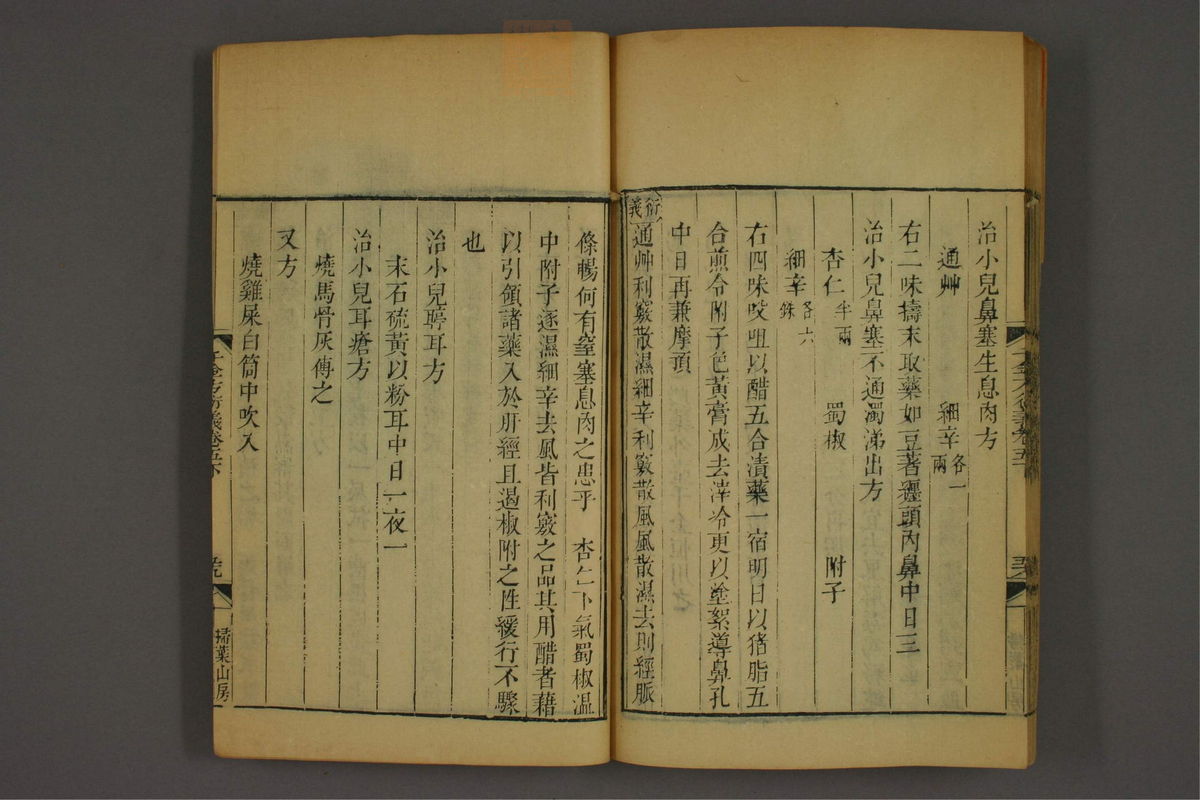 治小兒鼻塞生息肉方
通艸 細辛各一兩
右二味擣末取藥如豆著纏頭內鼻中日三
治小兒鼻塞不通濁涕出方
杏仁半兩 蜀椒 附子
細辛各六銖
右四味㕮咀以醋五合漬藥一宿明日以猪脂五
合煎令附子色黃膏成去滓冷更以塗絮導鼻孔
中日再兼摩頂
衍義通艸利竅散濕細辛利竅散風風散濕去則經脈
條暢何有窒塞息肉之患乎 杏仁下氣蜀椒溫
中附子逐濕細辛去風皆利竅之品其用醋者藉
以引領諸藥入於肝經且遏椒附之性緩行不驟
也
治小兒聤耳方
末石硫黃以粉耳中日一夜一
治小兒耳瘡方
燒馬骨灰傅之
又方
燒雞屎白筒中吹入
千金方衍義卷五下
掃葉山房